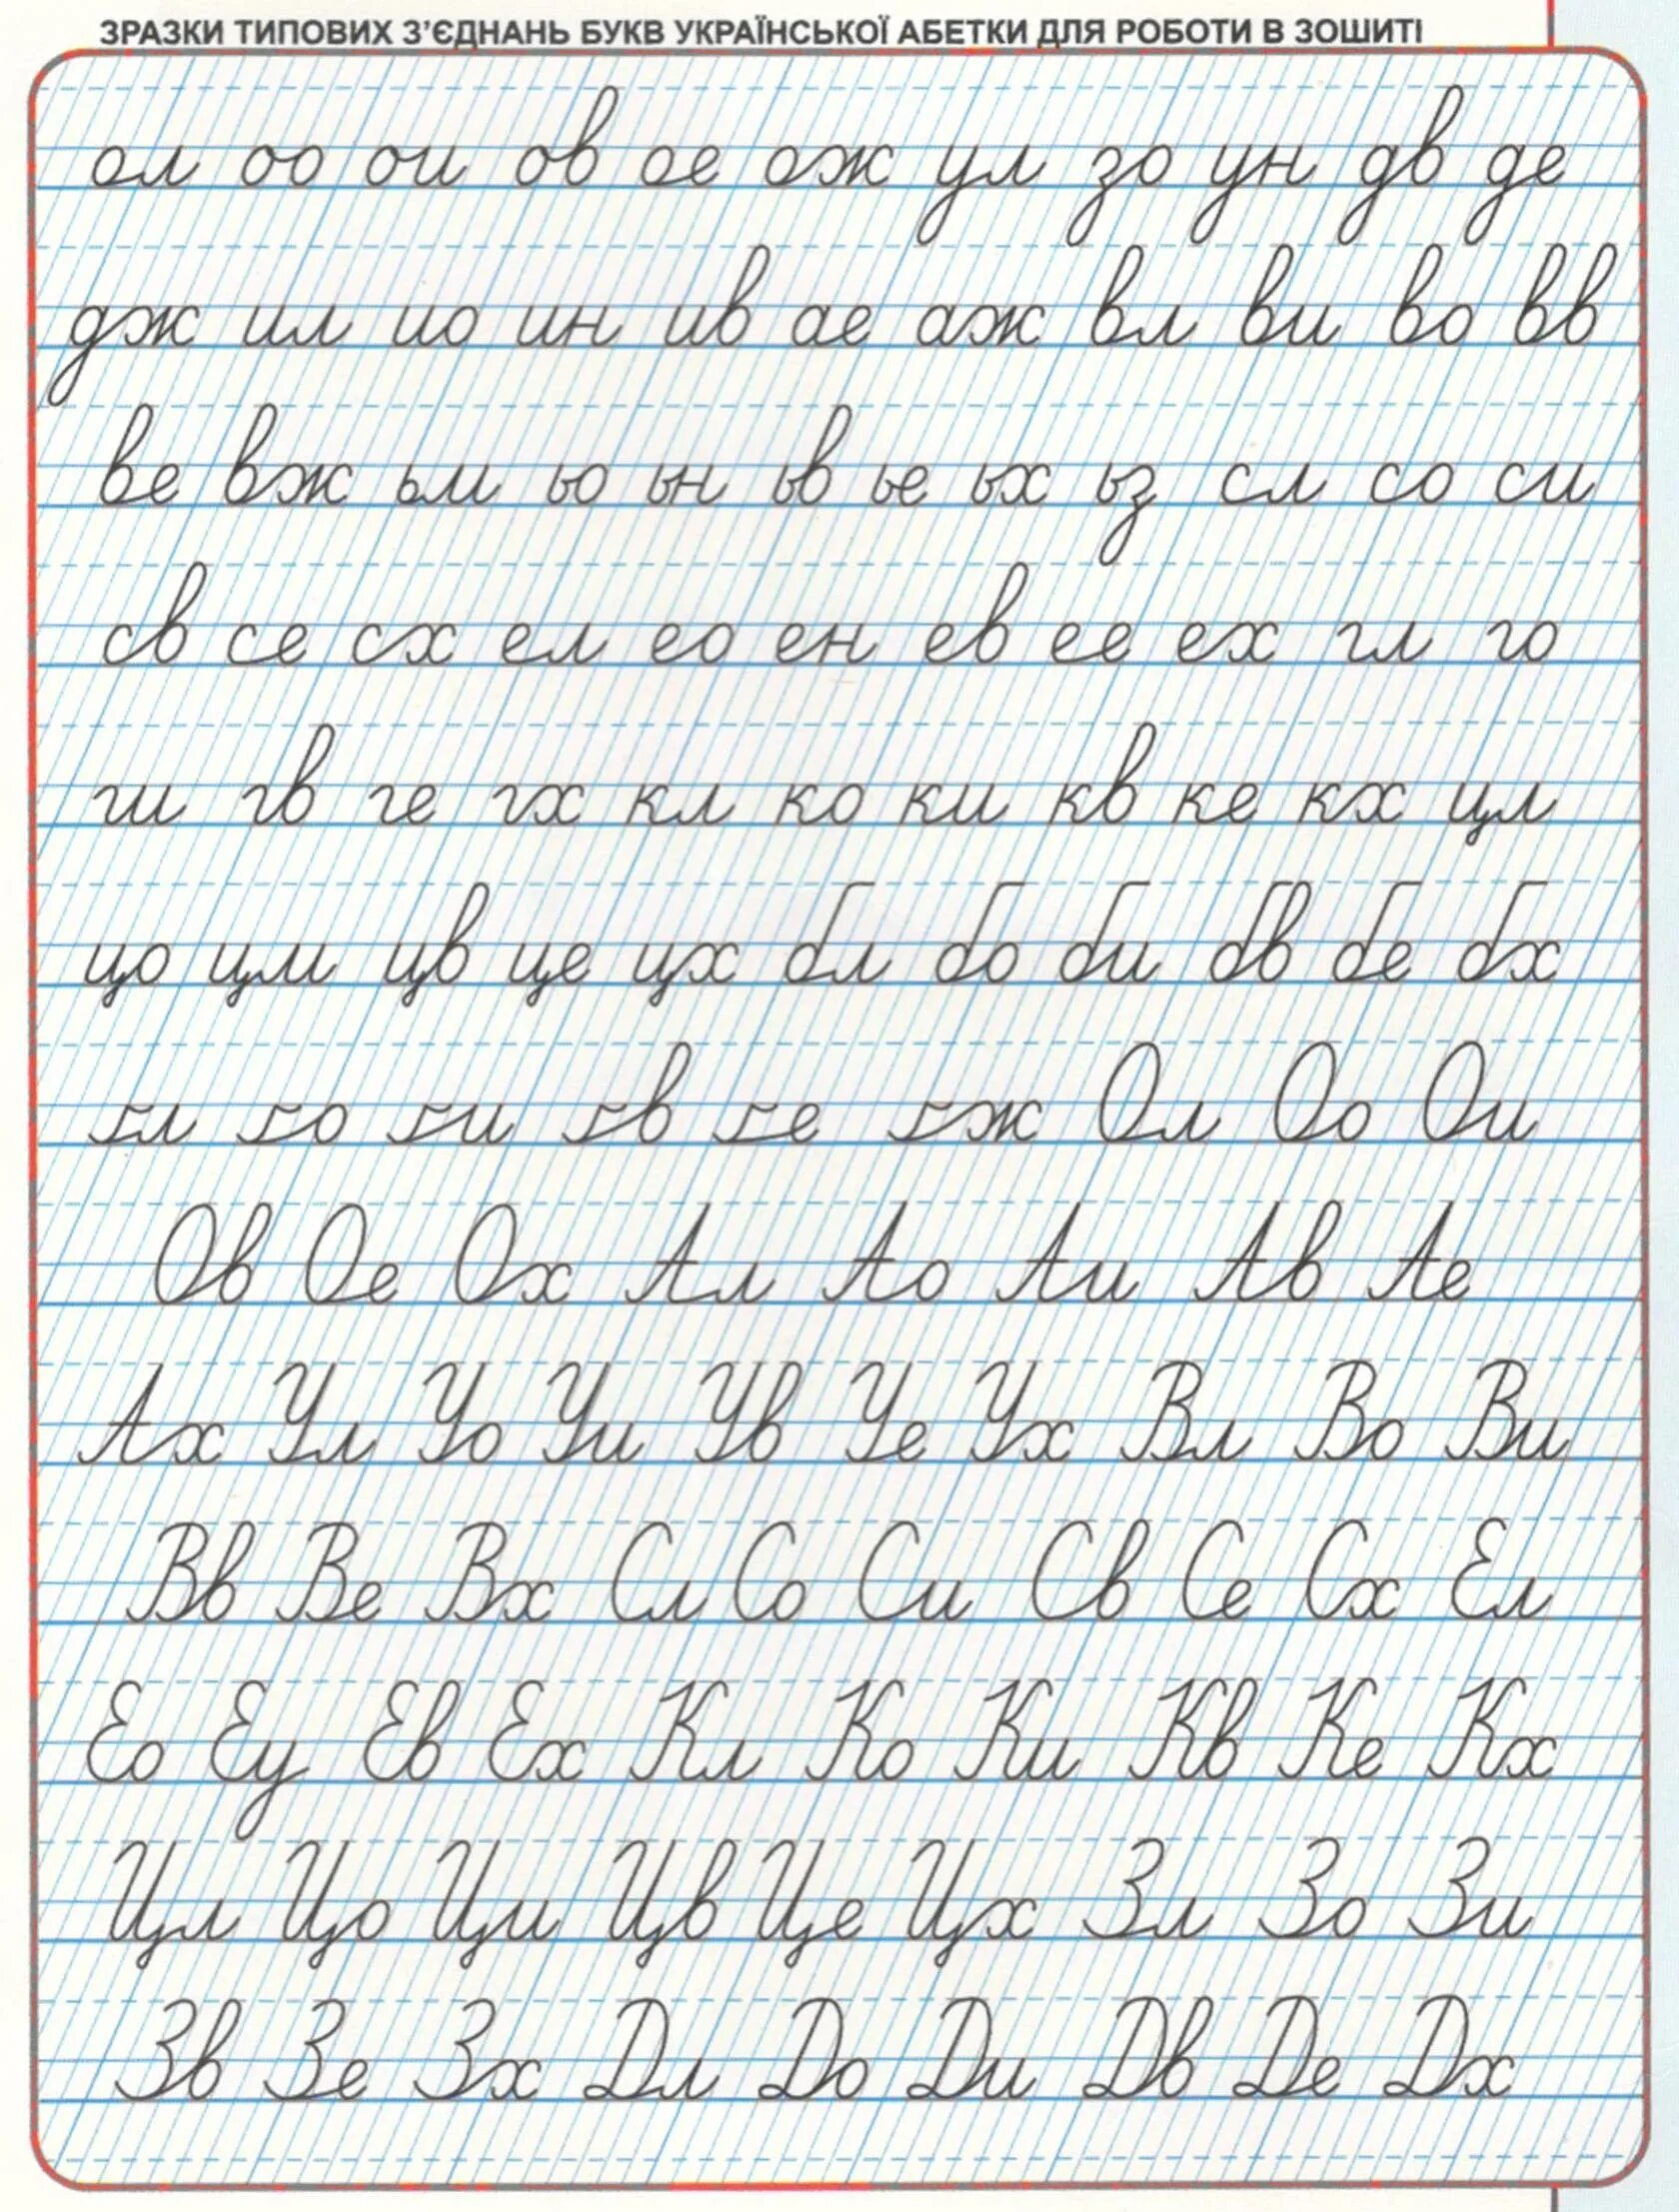 ЗРАЗКИ ТИПОВИХ З’ЄДНАНЬ БУКВ УКРАЇНСЬКОЇ АБЕТКИ ДЛЯ РОБОТИ В ЗОШИТІ
ол оо ои ов ое ож ул зо ун дв де
дж ил ио ин ив ае аж вл ви во вв
ве вж ьм ьо ьн ьв ье ьх ьз сл со си
св се сх ел ео ен ев ее ех гл го
ги гв ге гх кл ко ки кв ке кх цл
цо цм цв це цх бл бо би бв бе бх
Ол Оо Ои
Ов Ое Ох Ал Ао Аи Ав Ае
Ах Ул Уо Уи Ув Уе Ух Вл Во Ви
Вв Ве Вх Сл Со Си Св Се Сх Ел
Ео Еу Ев Ех Кл Ко Ки Кв Ке Кх
Цл Цо Ци Цв Це Цх Зл Зо Зи
Зв Зе Зх Дл До Ди Дв Де Дх